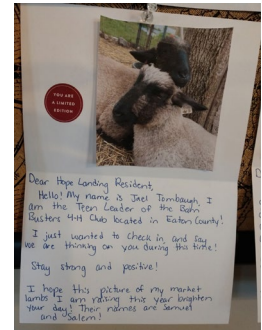 YOU ARE
A LIMITED
EDITION
Dear Hope Landing Resident,
Hello! My name is Jael Tombaugh I
am the Teen Leader of the Barn
Busters 4-H Club located in Eaton County!
I just wanted to check in and say
we are thinking on you during this time!
Stay strong and positive!
I hope this picture of my market
lambs I am raising this year brighten
your day! Their names are Samuel
and Salem!